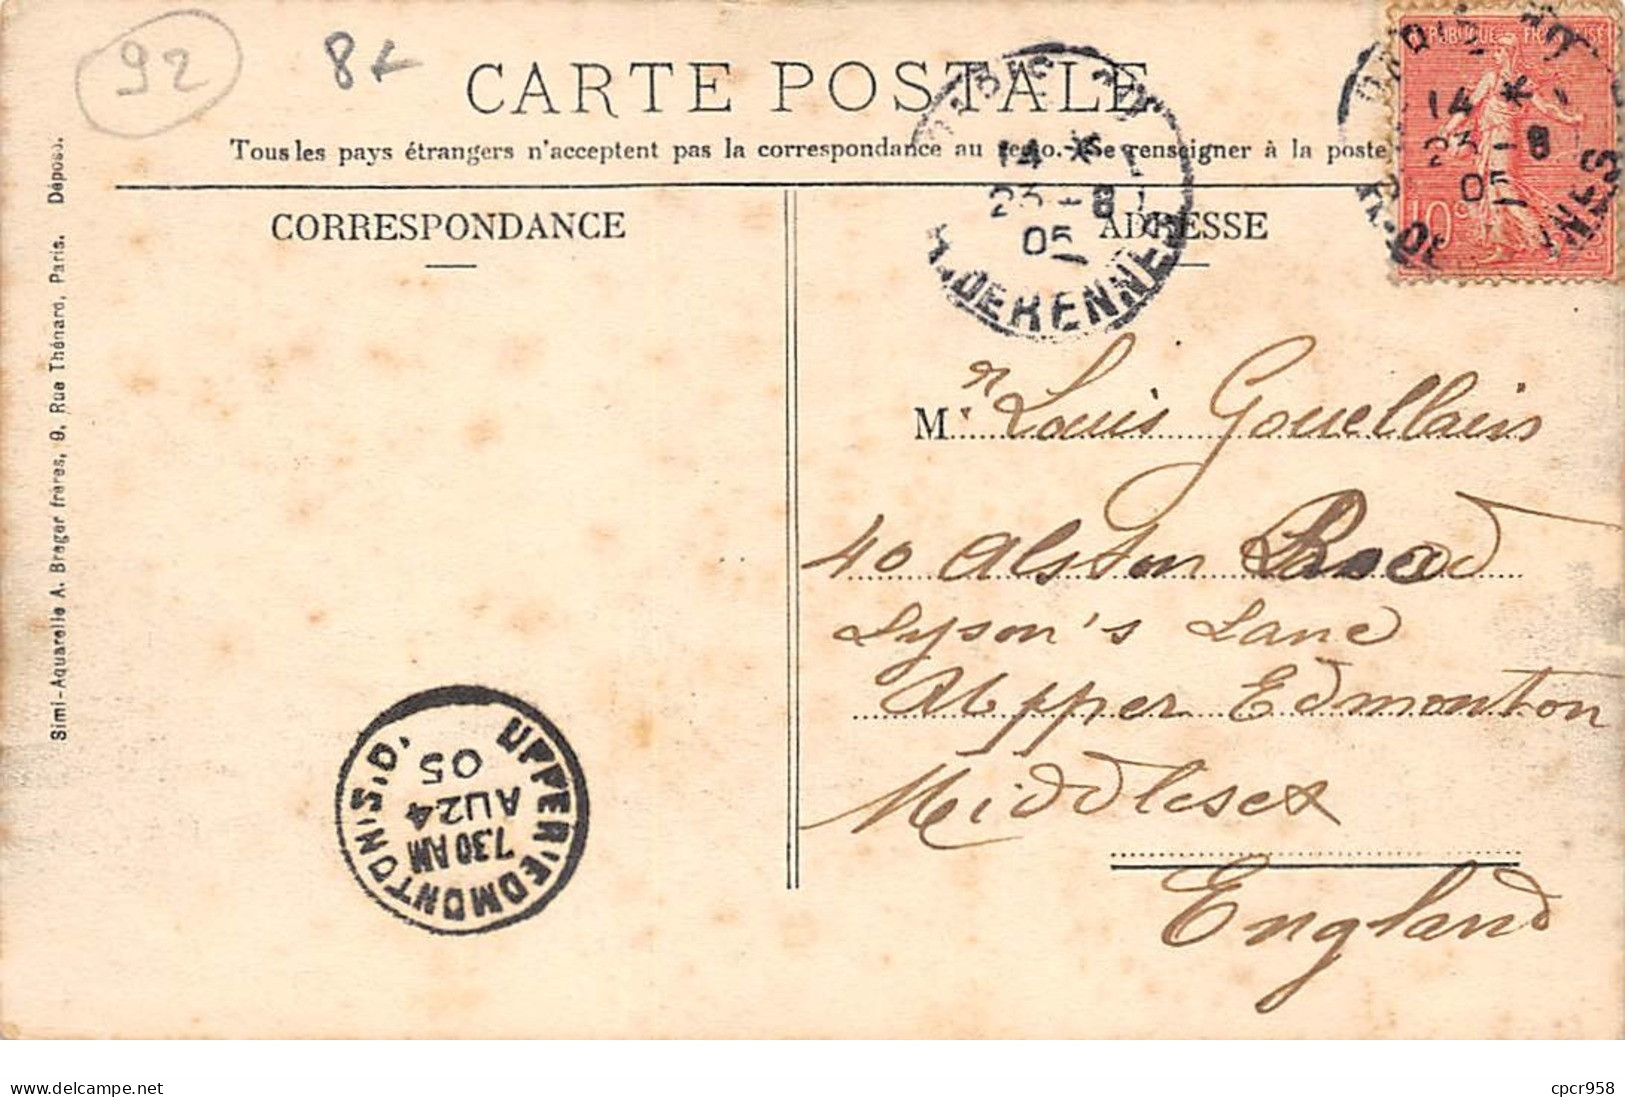 92
8
CARTE POSTALE
Tous les pays étrangers n'acceptent pas la correspondance au Se renseigner à la poste
CORRESPONDANCE
ADRESSE
14 *
23 - 8
05
R. DE RENNES
REPUBLIQUE FRANÇAISE
10 c
14 *
23 - 8
05
Mr Louis Gouellain
40 Alston Road
Lyson's Lane
Upper Edmonton
Middlesex
England
UPPER EDMONTON S.O.
7.30 AM
AU 24
05
Simi-Aquarelle A. Breger frères, 9, Rue Thénard, Paris. Déposé.
www.delcampe.net
cpcr958